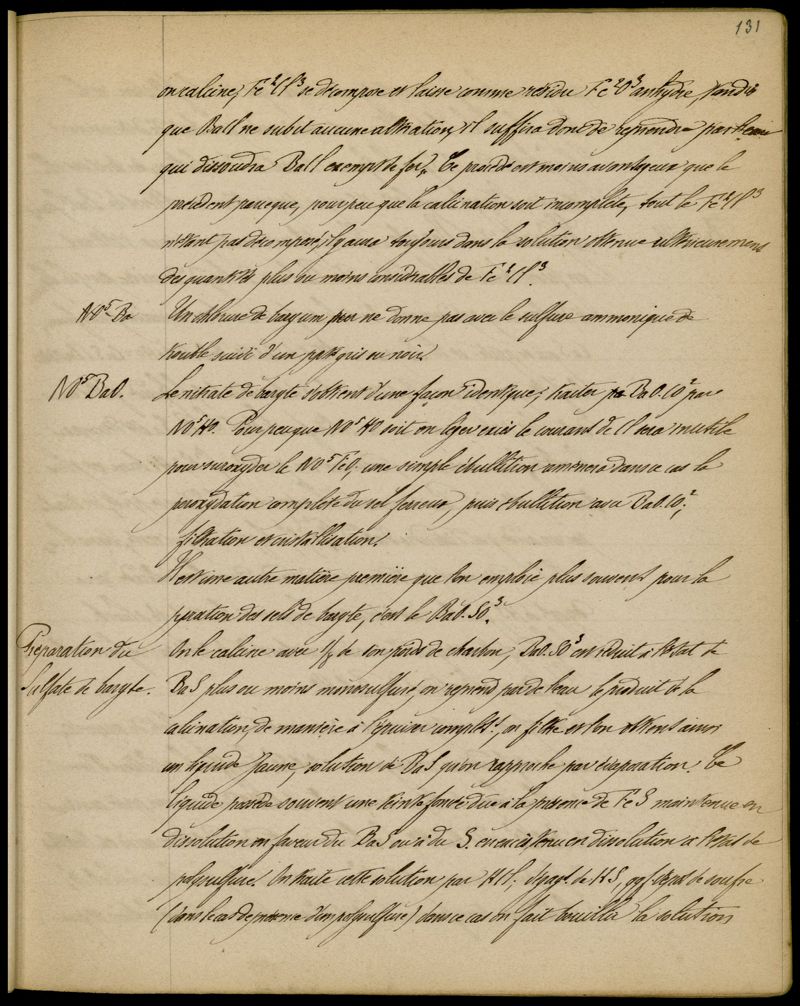 131
on calcine, Fe²Cl³ se décompose et laisse comme résidu Fe²O³ anhydre, tandis
que BaCl ne subit aucune altération, il suffira donc de reprendre par l'eau
qui dissoudra BaCl exempt de fer. Ce procédé est moins avantageux que le
précédent parceque, pour peu que la calcination soit incomplète, tout le Fe²Cl³
n'étant pas décomposé, il y aura toujours dans la solution obtenue ultérieurement
des quantités plus ou moins considérables de Fe²Cl³.
AzO⁵ Ba Un chlorure de baryum pur ne donne pas avec le sulfure ammonique de
trouble suivi d'un ppté gris ou noir.
AzO⁵ BaO. Le nitrate de baryte s'obtient d'une façon identique; traiter BaO.CO² par
AzO⁵HO. Pour peu que AzO⁵HO soit en léger excès le courant de Cl sera inutile
pour suroxyder le AzO⁵FeO; une simple ébullition amènera dans ce cas la
peroxydation complète du sel ferreux, puis ébullition avec BaO.CO²;
filtration et cristallisation.
Il est une autre matière première que l'on emploie plus souvent pour la
pparation des sels de baryte, c'est le BaO.SO³.
Préparation du On le calcine avec de son poids de charbon; BaO.SO³ est réduit à l'état de
Sulfate de baryte. BaS plus ou moins monosulfuré, on reprend par de l'eau le produit de la
calcination, de manière à l'épuiser complèt., on filtre et l'on obtient ainsi
un liquide jaune, solution de BaS qu'on rapproche par évaporation. Ce
liquide possède souvent une teinte foncée due à la présence de FeS maintenue en
dissolution en faveur du BaS ou du S. en excès tenu en dissolution à l'état de
polysulfure. On traite cette solution par HCl; dégag.t de HS, dépôt de soufre
(dans le cas de présence d'un polysulfure) dans ce cas on fait bouillir la solution